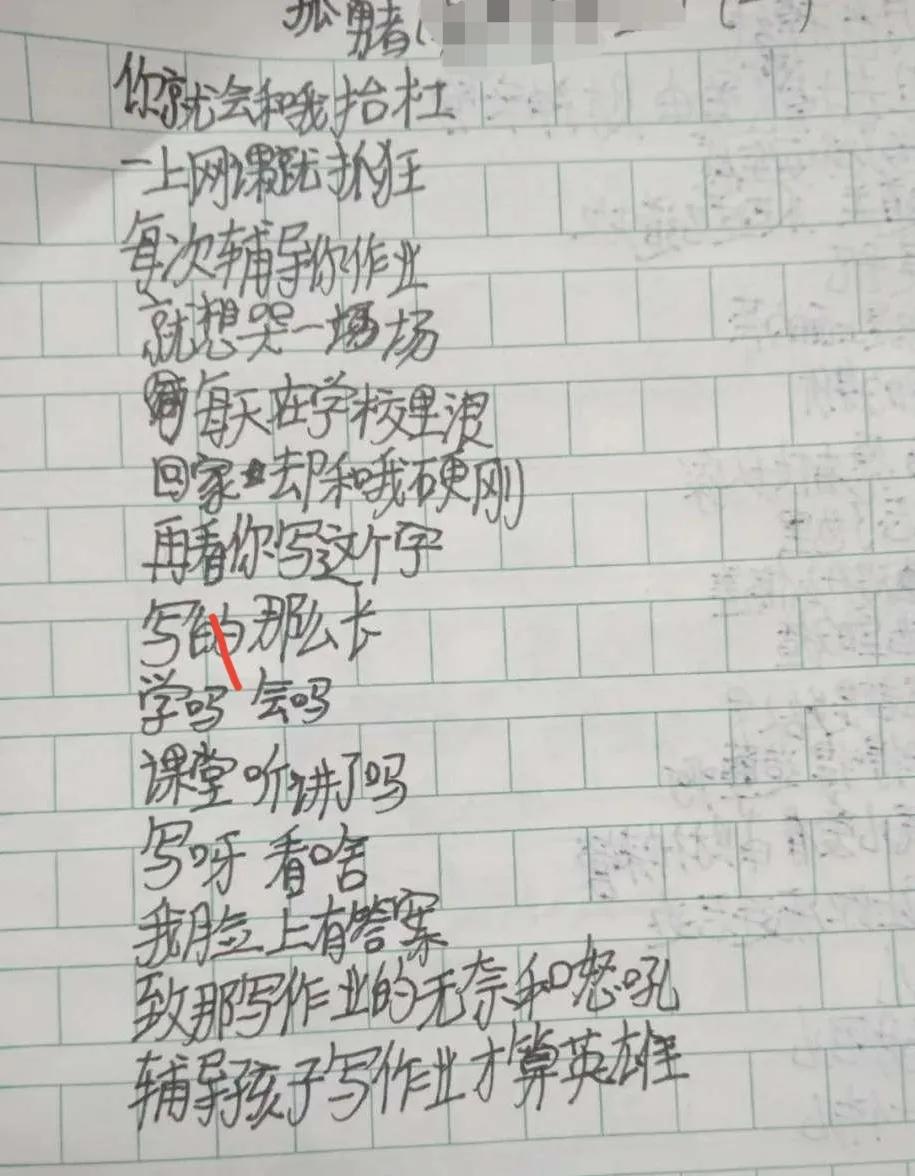 孤勇者(
你就会和我抬杠
一上网课就抓狂
每次辅导你作业
就想哭一场
每天在学校里浪
回家却和我硬刚
再看你写这个字
写的那么长
学吗 会吗
课堂听讲了吗
写呀 看啥
我脸上有答案
致那写作业的无奈和怒吼
辅导孩子写作业才算英雄